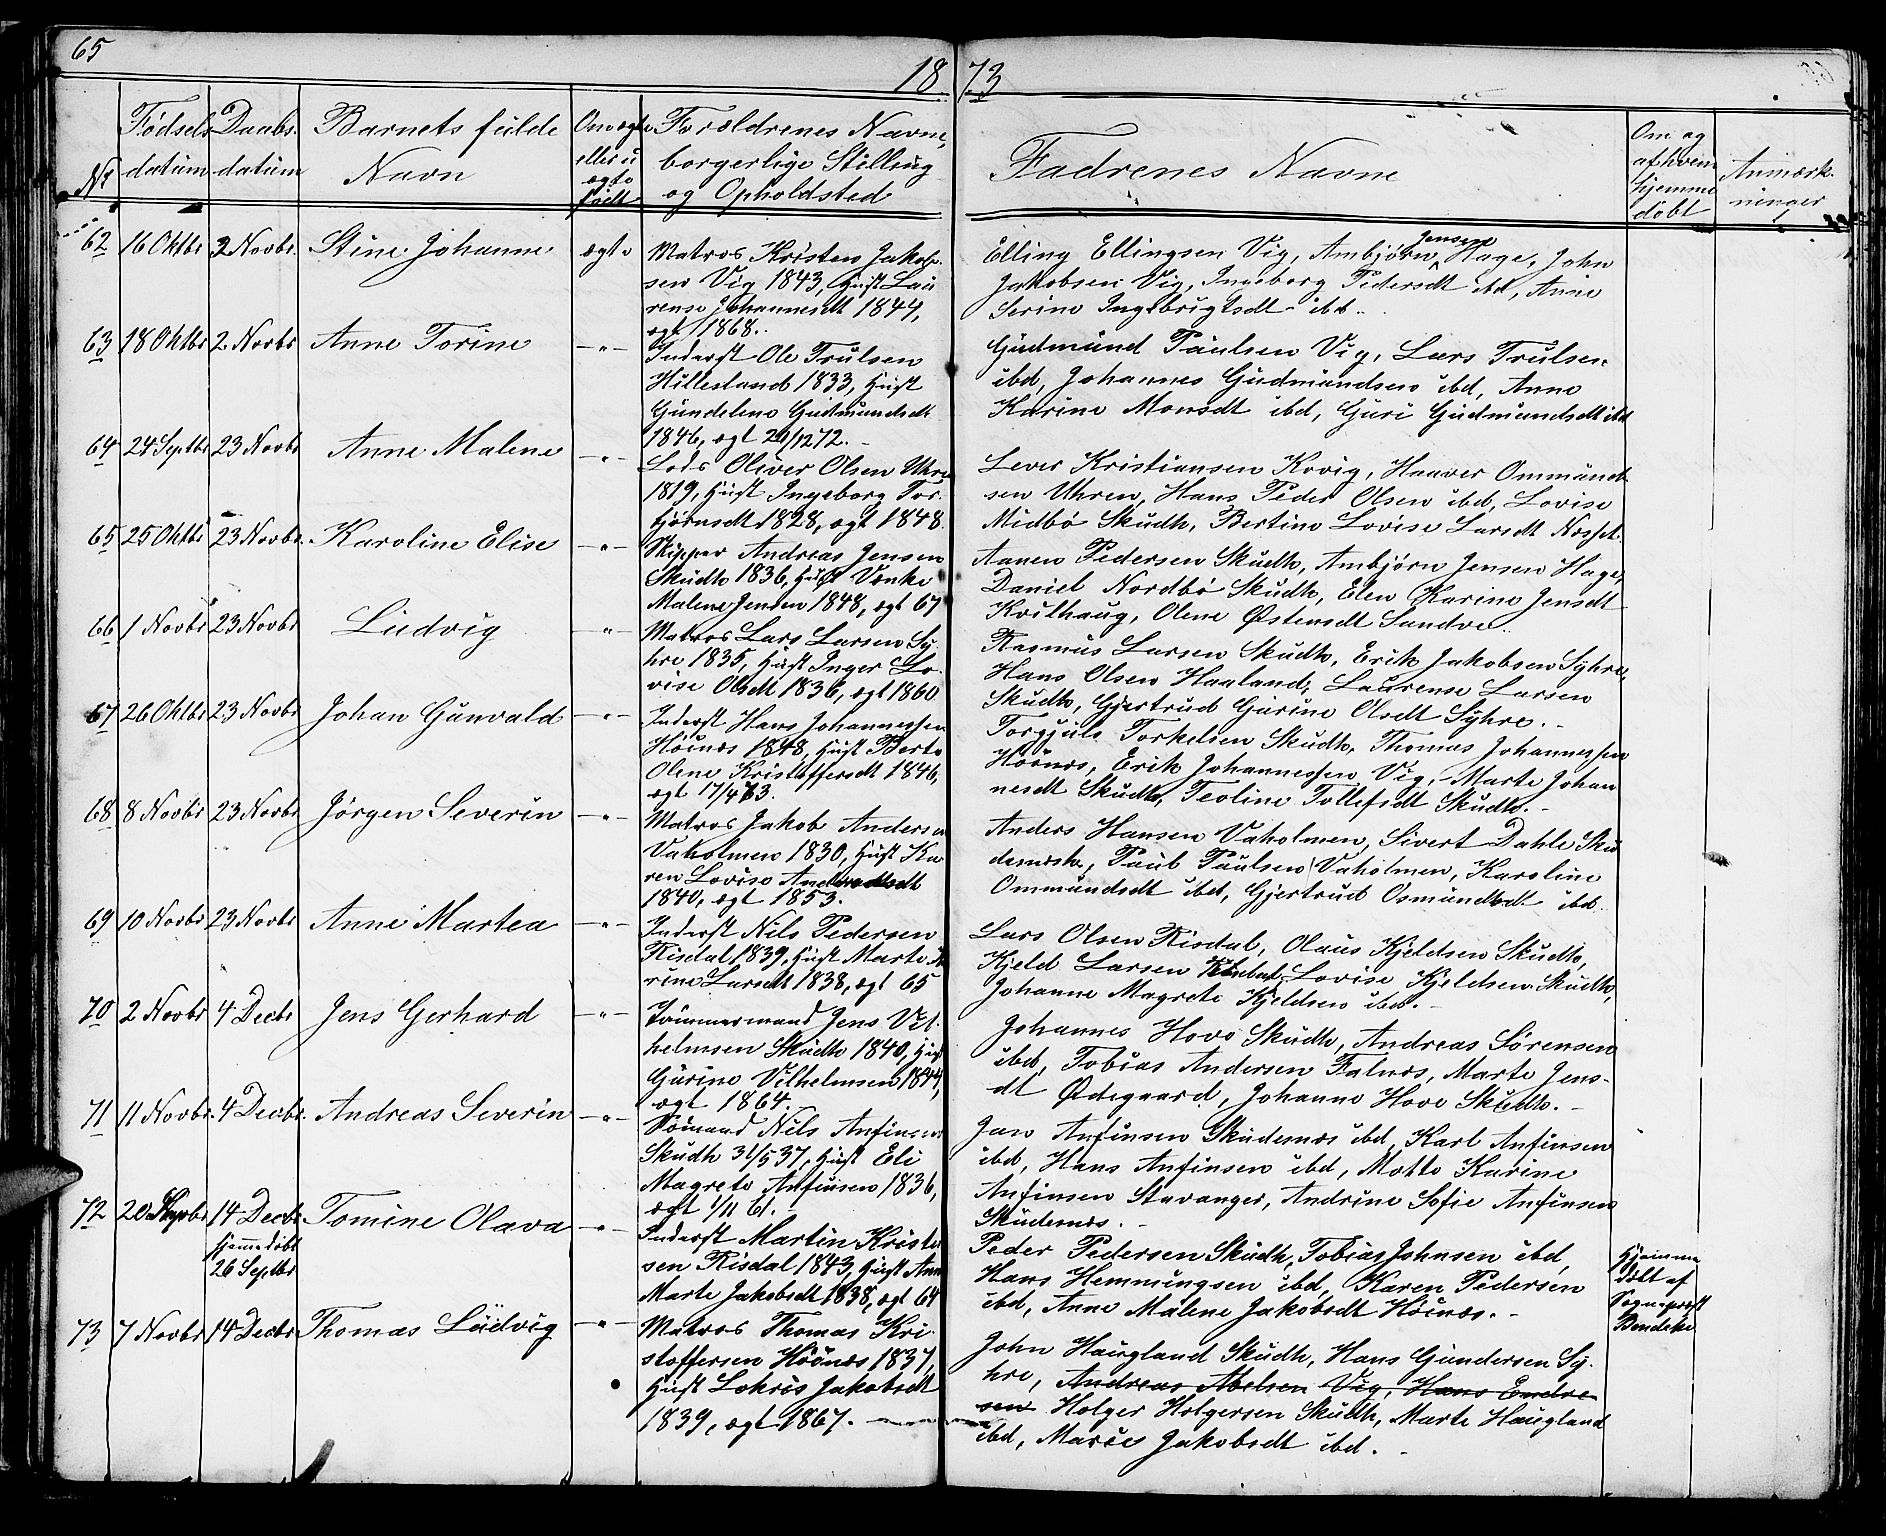 65
18 73
No
Fødsels datum
Daabs datum
Barnets fulde Navn
Om ægte eller uægte født
Forældrenes Navne, borgerlige Stilling og Opholdsted
Fadrenes Navne
Om og af hvem hjemme døbt
Anmærkninger
62 16 Oktbr 2 Novbr. Stine Johanne ægte
Matros Kristen Jakob-
sen Vig 1843, Hust Lau
rense Johannesdt 1844,
ægt 1868.
Elling Ellingsen Vig, Ambjørn Jensen Hage, John
Jakobsen Vig, Ingeborg Pedersdt ibd, Anne
Serine Ingebrigtsdt ibd.
63 18 Oktbr 2 Novbr Anne Torine -"-
Inderst Ole Trulsen
Hillesland 1833, Hust
Gundeline Gudmundsdt
1846, ægt 29/12 72.
Gudmund Paulsen Vig, Lars Trulsen
ibd, Johannes Gudmundsen ibd, Anne
Karine Monsdt ibd, Guri Gudmundsdt ibd
64 24 Septbr 23 Novbr Anne Malene -"-
Lods Oliver Olsen Uhre
1819, Hust Ingeborg Tor-
bjørnsdt 1828, ægt 1848.
Sever Kristiansen Kovig, Haaver Ommund-
sen Uhren, Hans Peder Olsen ibd, Lovise
Midbø Skudh, Bertine Lovise Larsdt
65 25 Oktbr 23 Novbr. Karoline Elise -"-
Skipper Andreas Jensen
Skudh 1836, Hust Venke
Malene Jensen 1848, ægt 67
Aanen Pedersen Skudh, Ambjørn Jensen Hage,
Daniel Nordbø Skudh, Elen Karine Jensdt
Kvilhaug, Olene Østensdt Sandve.
66 1 Novbr 23 Novbr Ludvig -"-
Matros Lars Larsen Sy-
hre 1835, Hust Inger Lo-
vise Olsdt 1836, ægt 1860
Rasmus Larsen Skudh, Erik Jakobsen Syhre,
Hans Olsen Haaland, Laurense Larsen
Skudh, Gjertrud Gurine Olsdt Syhre.
67 26 Oktbr 23 Novbr Johan Gunvald -"-
Inderst Hans Johannessen
Höinæs 1848, Hust Berte
Olene Kristoffersdt 1846,
ægt 17/4 73.
Torgjuls Torkelsen Skudh, Thomas Johannessen
Höinæs, Erik Johannessen Vig, Marte Johan
nesdt Skudh, Teoline Tollefsdt Skudh.
68 8 Novbr 23 Novbr Jørgen Severin -"-
Matros Jakob Andersen
Vaholmen 1830, Hust Ka
ren Lovise Andersdt
1840, ægt 1853.
Anders Hansen Vaholmen, Sivert Dahle Sku
desnæsh, Paul Paulsen Vaholmen, Karoline
Ommundsdt ibd, Gjertrud Osmundsdt ibd.
69 10 Novbr 23 Novbr Anne Martea -"-
Inderst Nils Pedersen
Risdal 1839, Hust Marte
rine Larsdt 1838, ægt 65
Lars Olsen Risdal, Olaus Kjeldsen Skudh,
Kjeld Larsen Lovise Kjeldsen Skudh,
Johanne Magrete Kjeldsen ibd.
70 2 Novbr 4 Decbr Jens Gerhard -"-
Tömmermand Jens Vil-
helmsen Skudh 1840, Hust
Gurine Vilhelmsen 1844,
ægt 1864.
Johannes Hove Skudh, Andreas Sørensen
ibd, Tobias Andersen Falnæs, Marte Jens-
dt Ødegaard, Johanne Hove Skudh.
71 11 Novbr. 4 Decbr. Andreas Severin -"-
Sömand Nils Anfinsen
Skudh 31/5 37, Hust Eli
Magrete Anfinsen 1836,
ægt 1/11 61.
Jan Anfinsen Skudesnæs ibd, Karl Anfinsen
ibd, Hans Anfinsen ibd, Motte Karine
Anfinsen Stavanger, Andrine Sofie Anfinsen
Skudesnæs.
72 20 Septbr 14 Decbr Tomine Olava -"-
hjemmedöbt
26 Septbr
Inderst Martin Krist
sen Risdal 1843, Hust Ann
Marte Jakobsdt 1838, ægt 64
Peder Pedersen Skudh, Tobias Johnsen ibd,
Hans Hemmingsen ibd, Karen Pedersen
ibd, Anne Malene Jakobsdt Höinæs.
Hjemme
döbt af
Sognepræst
Bendeke
73 7 Novbr 14 Decbr Thomas Ludvig -"-
Matros Thomas Kri-
stoffersen Höinæs 1837,
Hust Lokris Jakobsdt
1839, ægt 1867.
John Haugland Skudh, Hans Gundersen Sy-
hre, Andreas Abelsen Vig, Hans Endre-
sen Holger Holgersen Skudh, Marte Haugland
ibd, Marie Jakobsdt ibd.